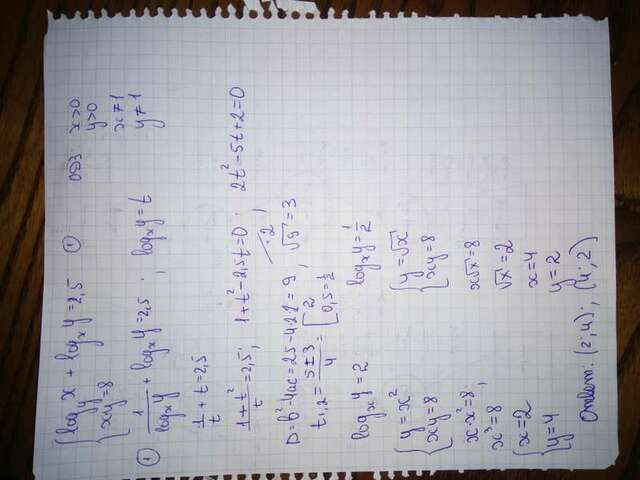 { log_y x + log_x y = 2,5 ①
xy = 8
ОДЗ x>0
y>0
x≠1
y≠1
① 1/log_x y + log_x y = 2,5 ; log_x y = t
1/t + t = 2,5
(1+t²)/t = 2,5; 1+t²-2,5t=0 ; 2t²-5t+2=0
·2
D=b²-4ac=25-4·2·2=9, √9=3
t₁,₂ = (5±3)/4 = [ 2
0,5=1/2
log_x y = 2 log_x y = 1/2
{ y=x² { y=√x
xy=8 xy=8
x·x²=8; x√x=8
x³=8 √x=2
{ x=2 x=4
y=4 y=2
Ответ: (2;4); (4;2)